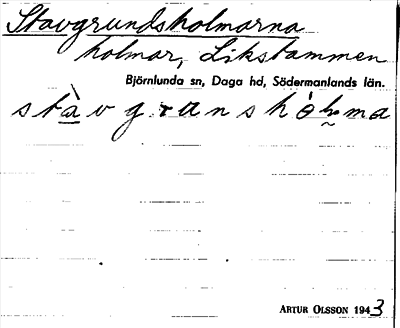 Stavgrundsholmarna
holmar, Likstammen
Björnlunda sn, Daga hd, Södermanlands län.
ARTUR OLSSON 1943